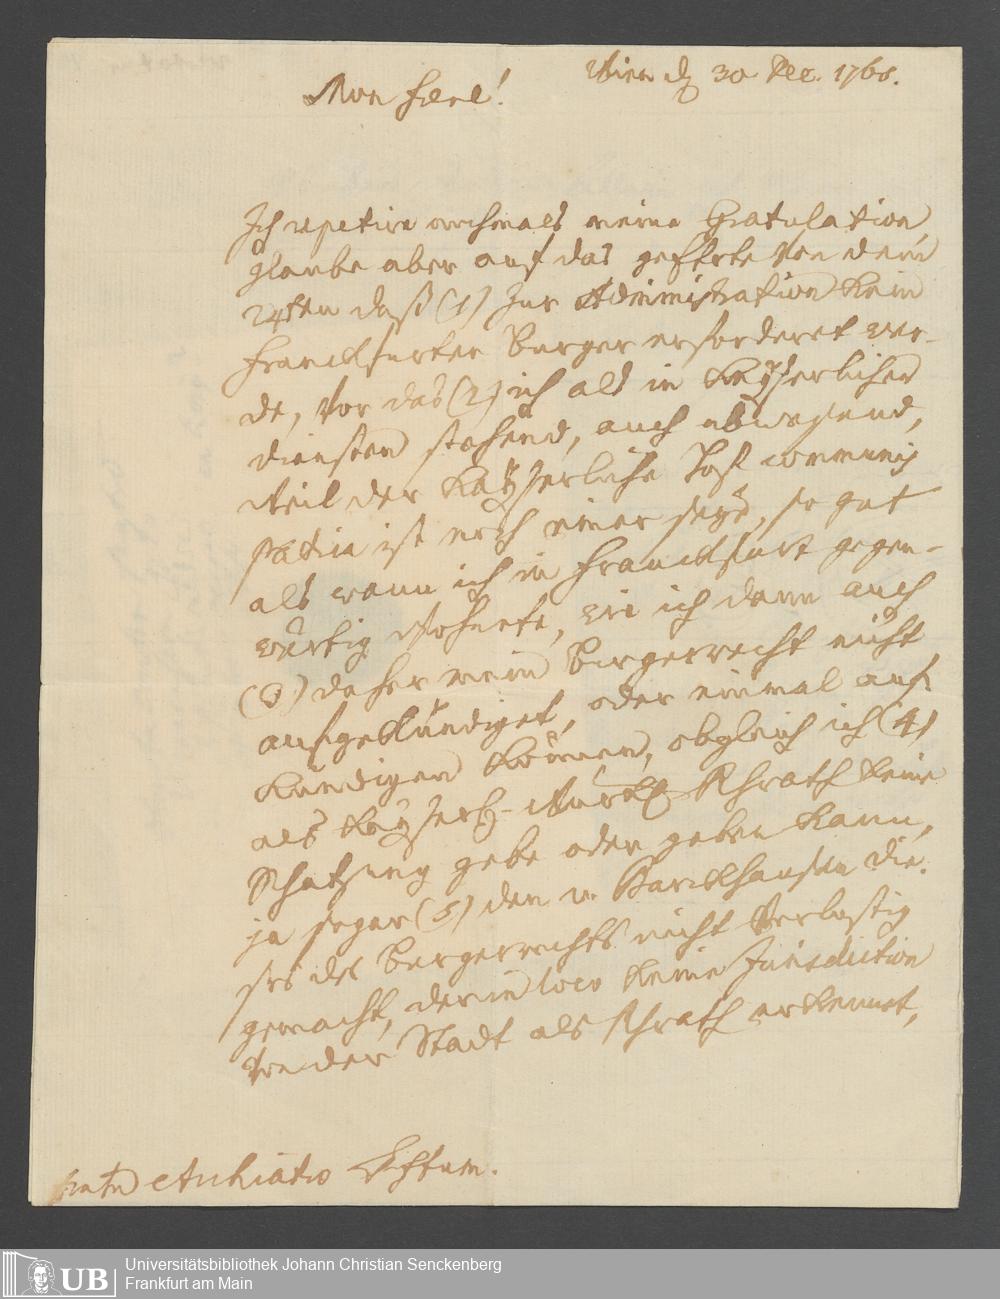 Wien dℓ 30 Dec. 1768.
Mon frere!
Ich repetire nochmals meine Gratulation,
glaube aber auf das geehrte von dem
24ten daß (1) zur Administration kein
Franckfurter Burger erforderet wer-
de, vor das (2) ich als in Kayserlichen
diensten stehend, auch abwesend,
weil der Kayserliche Hof communis
patria ist noch einer seye, so gut
als wann ich in Franckfurt gegen-
wärtig wohnete, wie ich dann auch
(3) daher mein Burgerrecht nicht
aufgekündiget, oder einmal auf-
kündigen können, obgleich ich (4)
als Kayserl. Rhrath keine
Schatzung gebe oder geben kann,
ja sogar (5) den v. Barckhausen die-
ses des Burgerrechts nicht verlustig
gemacht, der in loco keine Jurisdiction
von der Stadt als Rhrath erkennet,
Archiatro